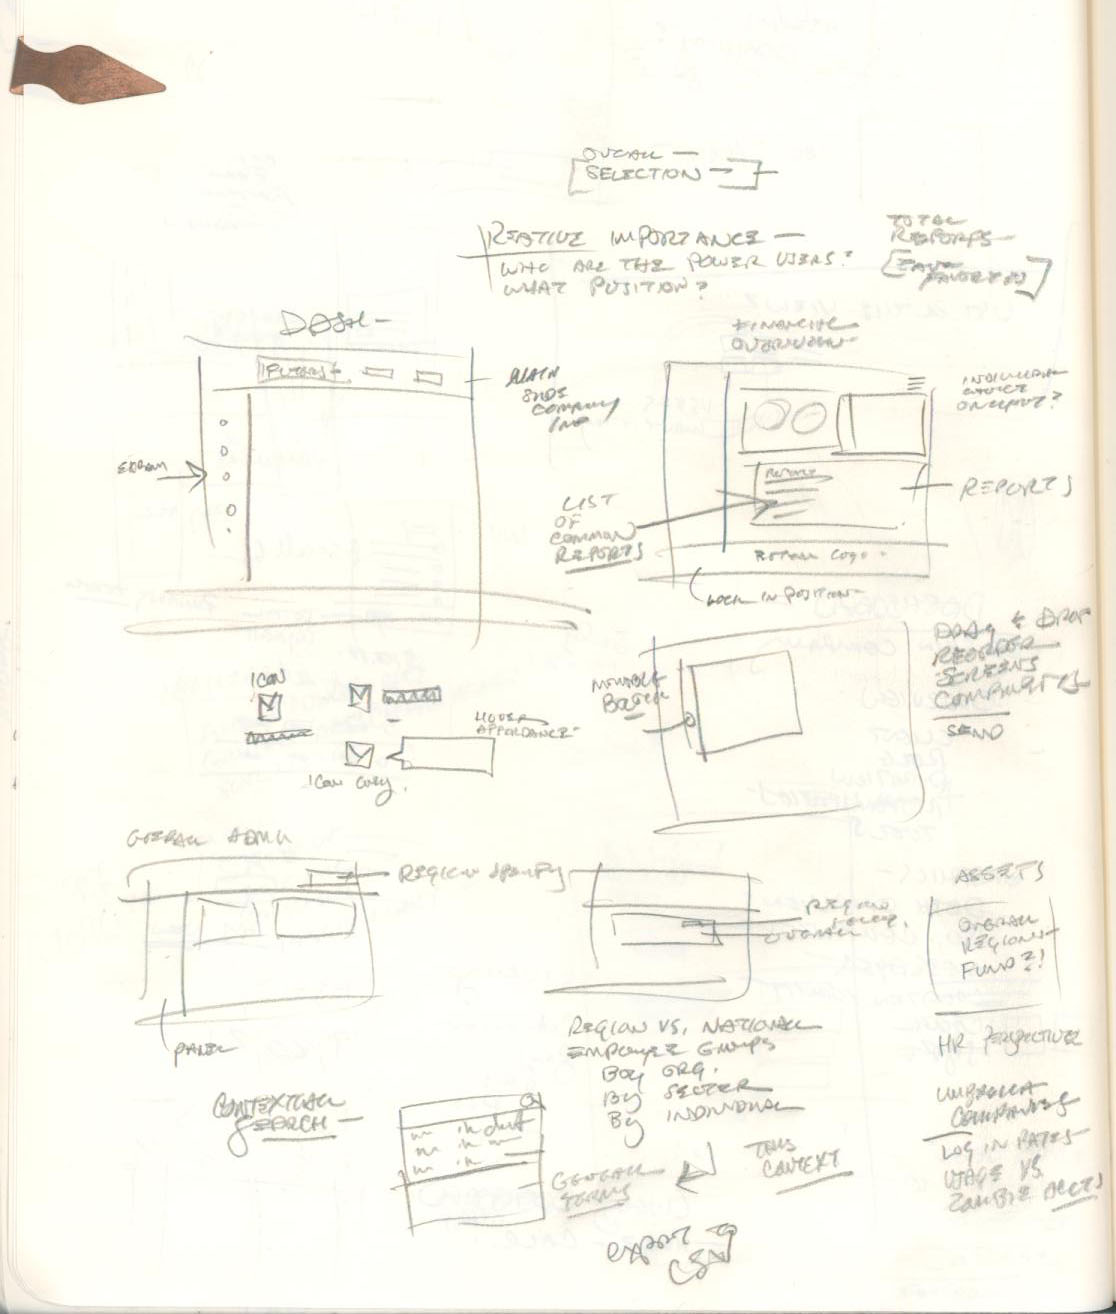 OVERALL —
SELECTION —
RELATIVE IMPORTANCE —
WHO ARE THE POWER USERS?
WHAT POSITION?
TOTAL
REPORTS —
[SAVE
FAVORITES]
DASH —
MAIN
COMPANY
FINANCIAL
OVERVIEW
INDIVIDUAL
REPORTS
REPORTS
LIST
OF
COMMON
REPORTS
LOGO
LOCK IN POSITION —
ICON
HOVER
AFFORDANCE
ICON ONLY.
MOVABLE
DRAG & DROP
REORDER
SCREENS
COMPONENTS
SEND
OVERALL ADMIN
REGION SPECIFY
REGION
OVERALL
PANEL
ASSETS
OVERALL
REGIONS
FUND?!
REGION VS. NATIONAL
EMPLOYEE GROUPS
BY ORG.
BY SECTOR
BY INDIVIDUAL
HR PERSPECTIVE
UMBRELLA
COMPANIES
LOG IN RATES
USAGE VS.
ZOMBIE ACCTS
CONTEXTUAL
SEARCH —
GENERAL
TERMS
THIS
CONTEXT
EXPORT TO
CSV